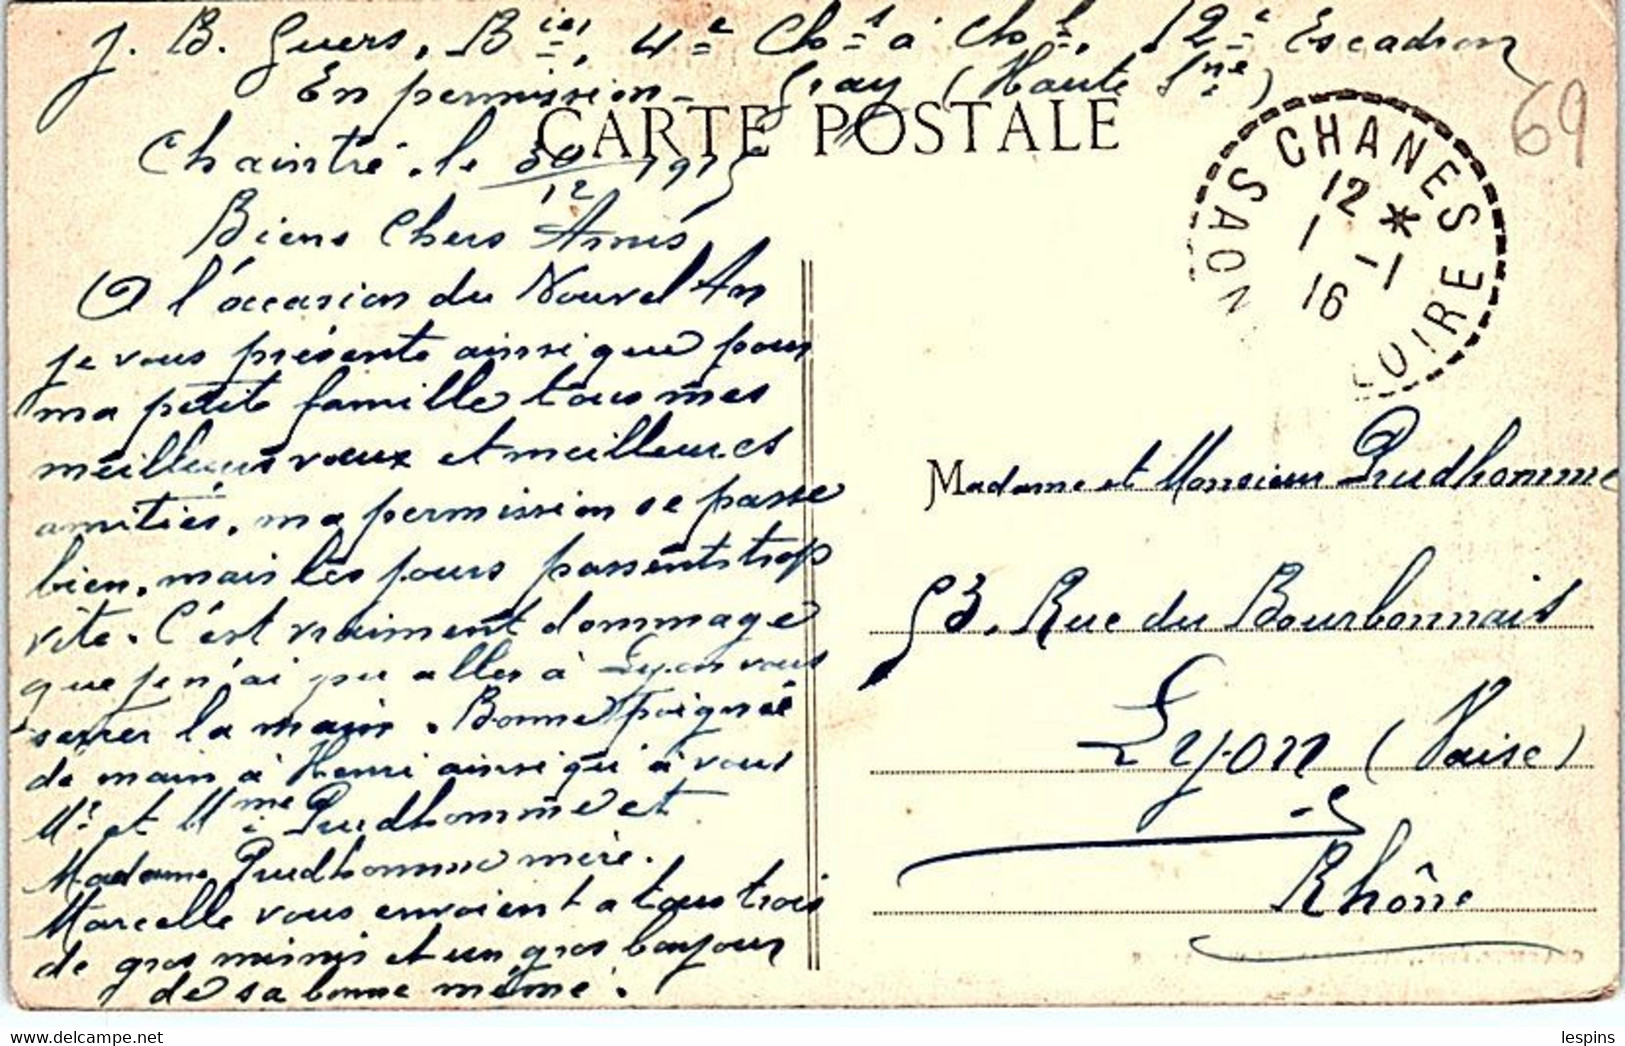 J. B. Guers, B<sup>ier</sup>, 4<sup>e</sup> Ch<sup>s</sup> à Ch<sup>l</sup>, 12<sup>e</sup> Escadron
En permission - Gray (Haute S<sup>ne</sup>)
CARTE POSTALE
Chaintré, le 30/12 1915
Biens Chers Amis
A l'occasion du Nouvel An
je vous présente ainsi que pour
ma petite famille tous mes
meilleurs vœux et meilleures
amitiés, ma permission se passe
bien, mais les jours passent trop
vite. C'est vraiment dommage
que je n'ai pu aller à Lyon vous
serrer la main. Bonne poignée
de main à Henri ainsi qu'à vous
M<sup>r</sup> et M<sup>me</sup> Prudhomme et
Madame Prudhomme mère.
Marcelle vous envoient a tous trois
de gros mimis et un gros bonjour
de sa bonne mémé.
CHANES
12 *
1 - 1
16
SAÔNE LOIRE
69
Madame et Monsieur Prudhomme
53, Rue du Bourbonnais
Lyon (Vaise)
Rhône
lespins